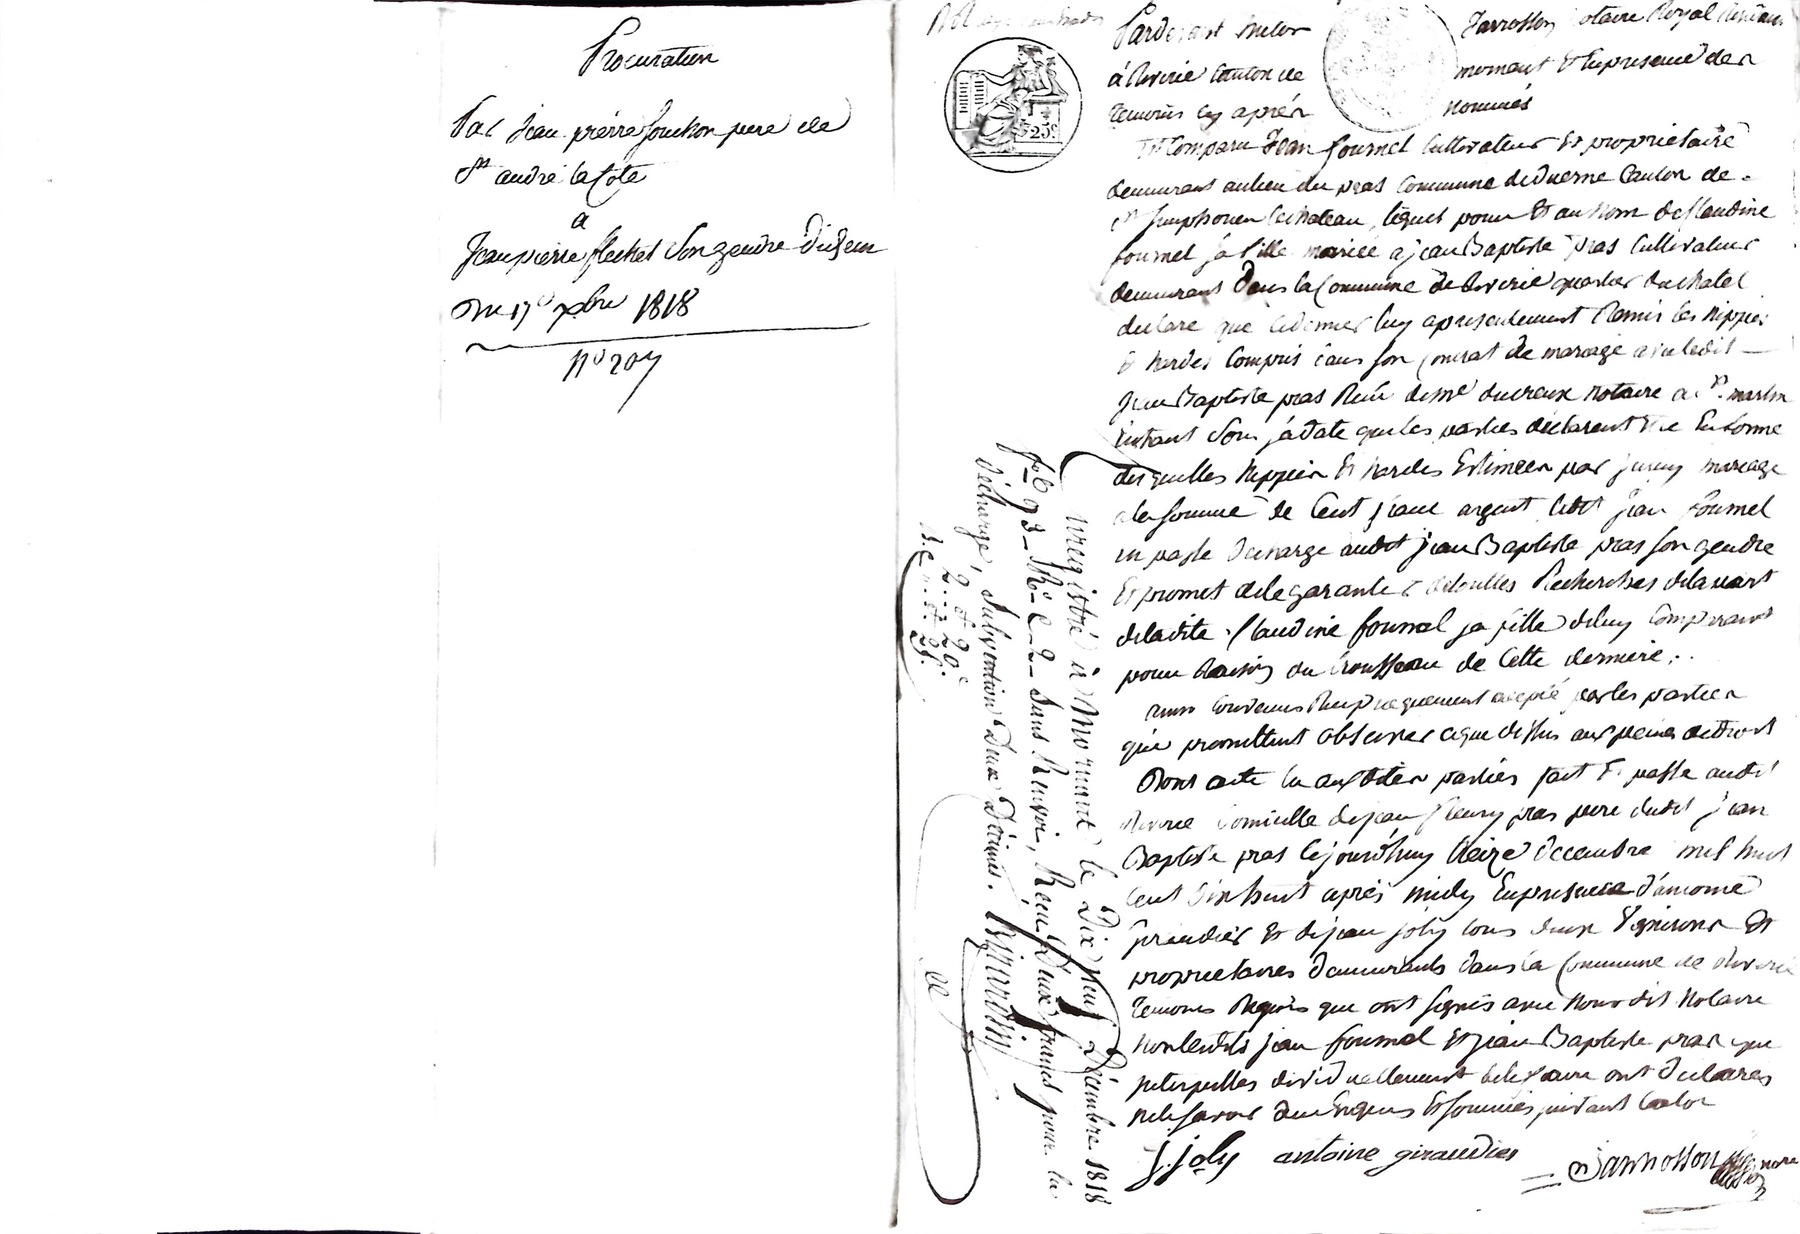 Procuration
Par Jean pierre fouchon pere de
St andré la Cote
a
Jean pierre flechet Son gendre
Du 17e xbre 1818
No 207
Pardevant
Jarrosson Notaire Royal
à Riverie Canton de
mornant Et En presence des
temoins cy aprés
nommés
25c
Est Comparu Jean fournel Cultivateur Et proprietaire
demeurant au lieu du pras Commune de Duerne Canton de
St Simphorien le chateau, lequel pour Et au nom de Claudine
fournel sa fille mariée a jean Baptiste pras Cultivateur
demeurant Dans la Commune de Riverie quartier du chatel
declare que ce dernier luy a presentement Remis les Nippes
Et hardes Compris dans son Contrat de mariage avec ledit
Jean Baptiste pras Reçu de Me ducreux notaire a St martin
Sous sa date que les parties declarent
desquelles Nippes Et hardes Estimées par mariage
a la somme de Cent argent ledit Jean fournel
en passe decharge audit jean Baptiste pras son gendre
Et promet de le garantir de toutes Recherches de la part
de la dite Claudine fournel sa fille de luy Comparant
pour Raison du trousseau de Cette derniere;
ainsi Convenu Reciproquement accepté par les parties
qui promettent observer ce que dessus aux peines de droit
Dont acte lu aux dites parties fait Et passé audit
Riverie domicille de jean fleury pras pere dudit Jean
Baptiste pras Cejourd'huy treize decembre mil huit
Cent dix huit aprés midy En presence d'antoine
giraudier Et de jean joly tous deux Vignerons Et
proprietaires demeurants dans la Commune de Riverie
temoins Requis qui ont signés avec Nous dit Notaire
Non lesdits jean fournel Et jean Baptiste pras qui
interpellés de le faire ont declarés
ne le savoir de ce Enquis Et sommés suivant la loi
J. joly antoine giraudier Jarrosson
Enregistré à Mornant le Dix neuf Décembre 1818
fo 93 - Ro C. 2 - Sans Renvoi, Reçu Deux francs pour la
décharge, Subvention Deux Décimes.
2 f 20 c